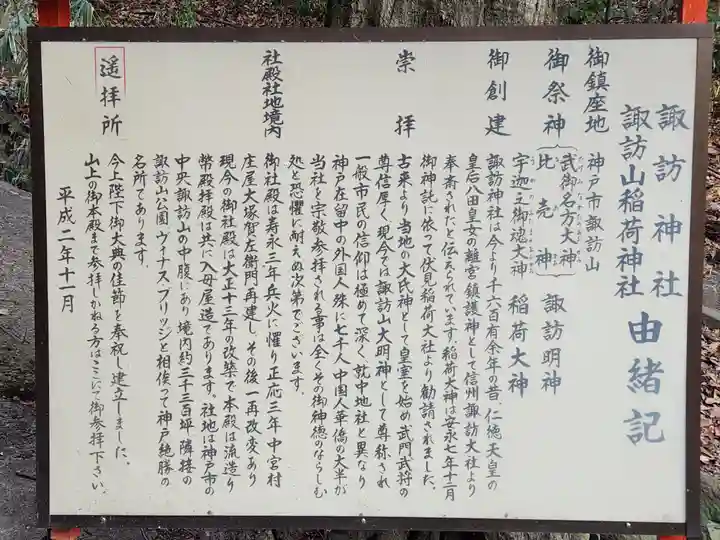 諏訪神社
諏訪山稲荷神社
由緒記
御鎮座地 神戸市諏訪山
御祭神 武御名方大神 諏訪明神
比売神
宇迦之御魂大神 稲荷大神
御創建 諏訪神社は今より千六百有余年の昔、仁徳天皇の
皇后八田皇女の離宮鎮護神として信州諏訪大社より
奉斎されたと伝えられています。稲荷大神は安永七年十二月
御神託に依って伏見稲荷大社より勧請されました。
崇拝 古来より当地の大氏神として皇室を始め武門武将の
尊信厚く、現今では諏訪山大明神として尊称され
一般市民の信仰は極めて深く、就中他社と異なり
神戸在留中の外国人、殊に七千人中国人華僑の大半が
当社を宗敬参拝される事は全くその御神徳のならしむ
処と恐懼に耐えぬ次第でございます。
社殿社地境内 御社殿は寿永三年兵火に罹り正応三年中宮村
庄屋大塚賀左衛門再建し、その後一再改変あり
現今の御社殿は大正十三年の改築で本殿は流造り
幣殿拝殿は共に入母屋造であります。社地は神戸市の
中央諏訪山の中腹にあり境内約三千三百坪、隣接の
諏訪山公園、ヴィナスブリッジと相俟って神戸絶勝の
名所であります。
遥拝所 今上陛下御大典の佳節を奉祝し建立しました。
山上の御本殿まで参拝しかねる方はここにて御参拝下さい。
平成二年十一月